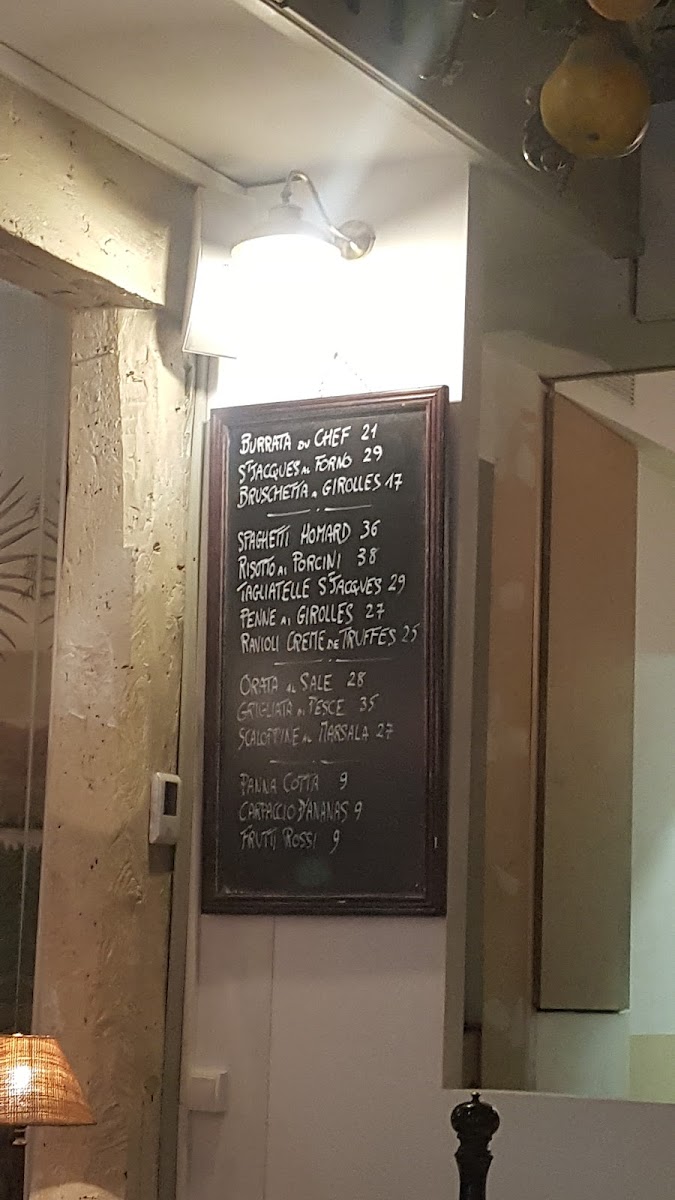 BURRATA DU CHEF 21
ST JACQUES AL FORNO 29
BRUSCHETTA A GIROLLES 17
SPAGHETTI HOMARD 36
RISOTTO AI PORCINI 38
TAGLIATELLE ST JACQUES 29
PENNE AI GIROLLES 27
RAVIOLI CREME DE TRUFFES 25
ORATA AL SALE 28
GRIGLIATA DI PESCE 35
SCALOPPINE AL MARSALA 27
PANNA COTTA 9
CARPACCIO D'ANANAS 9
FRUTTI ROSSI 9